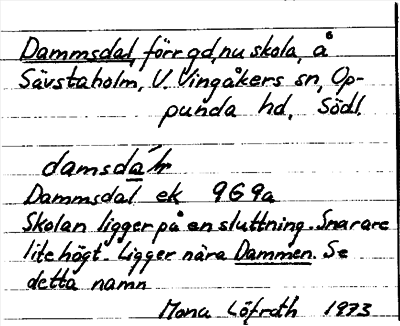 Dammsdal, förr gd, nu skola, å
Sävstaholm, V. Vingåkers sn, Op-
punda hd, Södl.
Dammsdal ek 9G9a
Skolan ligger på en sluttning. Snarare
lite högt. Ligger nära Dammen. Se
detta namn
Mona Löfroth 1973